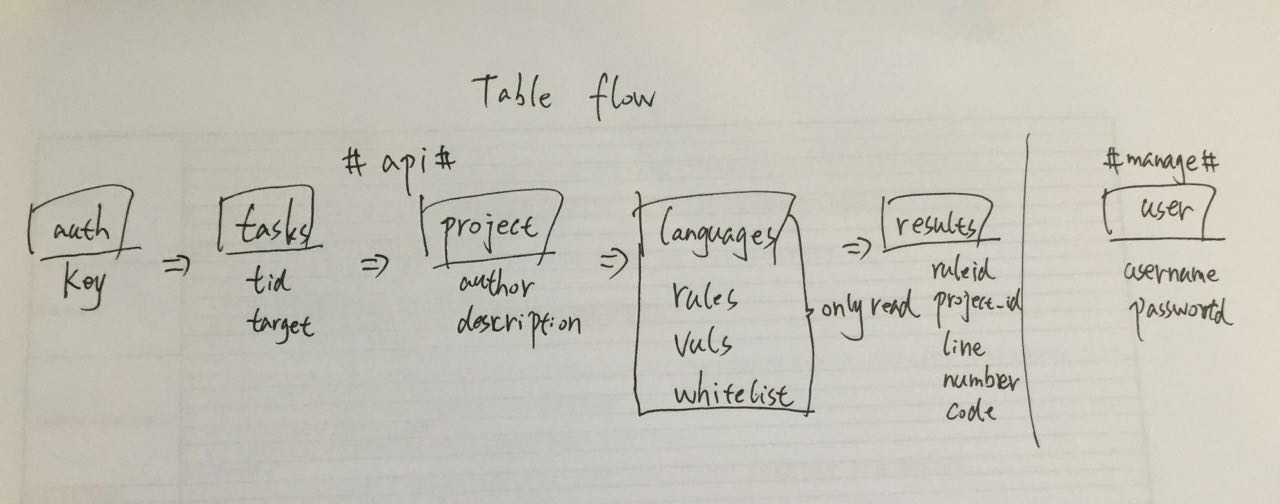 Table flow
#api#
auth
key
⇒
tasks
tid
target
⇒
project
author
description
⇒
languages
rules
vuls
whitelist
only read
⇒
results
ruleid
project-id
line
number
code
#manage#
user
username
passwortd